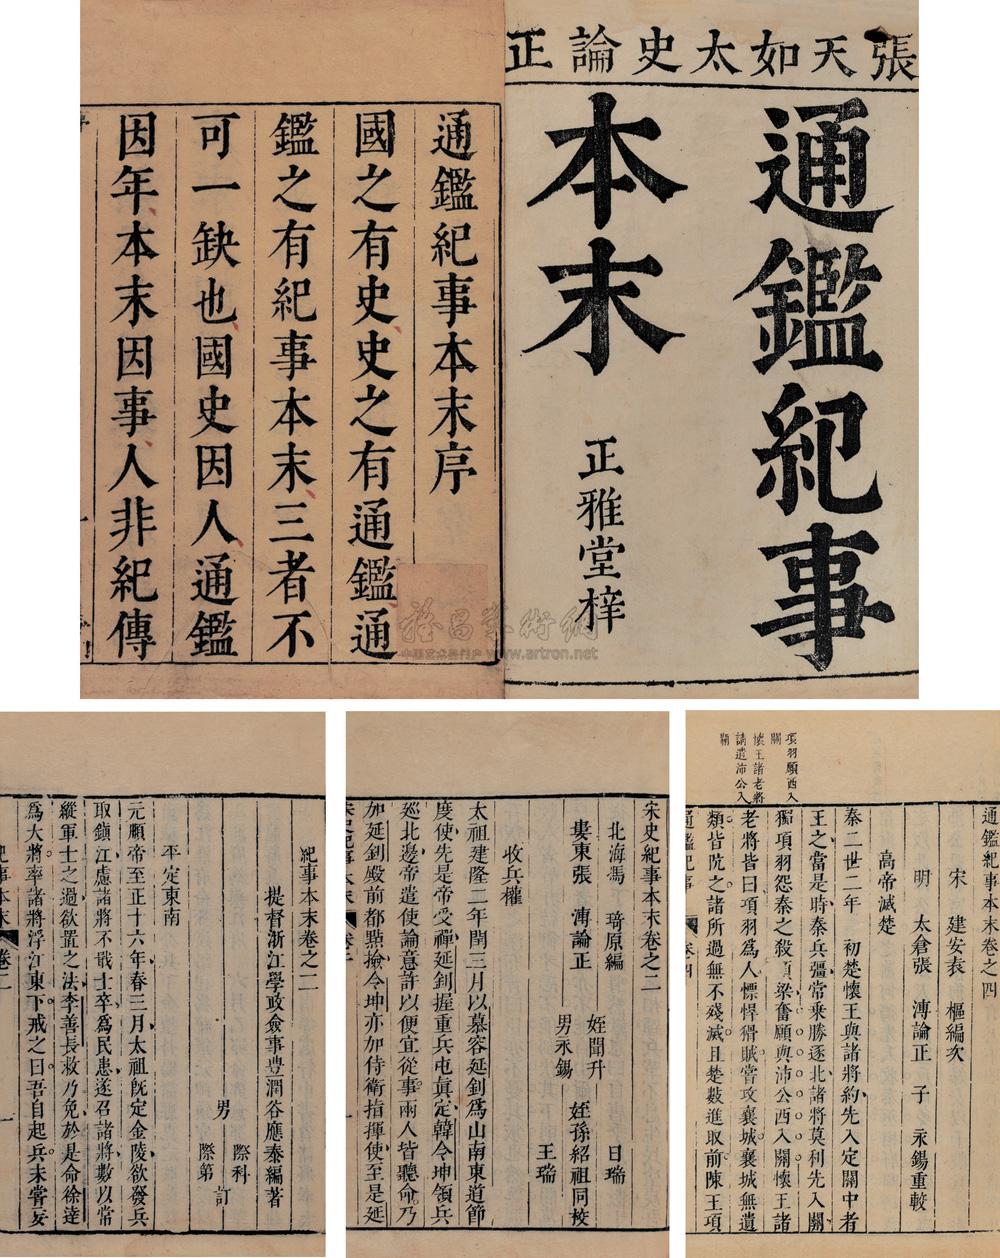 張天如太史論正
通鑑紀事
本末
正雅堂梓
通鑑紀事本末序
國之有史史之有通鑑通
鑑之有紀事本末三者不
可一缺也國史因人通鑑
因年本末因事人非紀傳
www.artron.net
項羽願西入
關
懷王諸老將
請遣沛公入
關
通鑑紀事本末卷之四
宋 建安袁 樞編次
明 太倉張 溥論正 子 永錫重較
高帝滅楚
秦二世二年 初楚懷王與諸將約先入定關中者
王之當是時秦兵彊常乘勝逐北諸將莫利先入關
獨項羽怨秦之殺項梁奮願與沛公西入關懷王諸
老將皆曰項羽為人慓悍猾賊嘗攻襄城襄城無遺
類皆阬之諸所過無不殘滅且楚數進取前陳王項
通鑑紀事 卷四
宋史紀事本末卷之二
北海馮 琦原編 姪聞升 日瑞
婁東張 溥論正 男永錫 姪孫紹祖同校 王瑞
收兵權
太祖建隆二年閏三月以慕容延釗爲山南東道節
度使先是帝受禪延釗握重兵屯真定韓令坤領兵
巡北邊帝遣使諭意許以便宜從事兩人皆聽命乃
加延釗殿前都點撿令坤亦加侍衛指揮使至是延
宋史紀事本末
紀事本末卷之二
提督浙江學政僉事豐潤谷應泰編著
男 際科 際第 訂
平定東南
元順帝至正十六年春三月太祖既定金陵欲發兵
取鎮江慮諸將不戢士卒爲民患遂召諸將數以常
縱軍士之過欲置之法李善長救乃免於是命徐達
爲大將率諸將浮江東下戒之曰吾自起兵未嘗妄
紀事本末 卷二